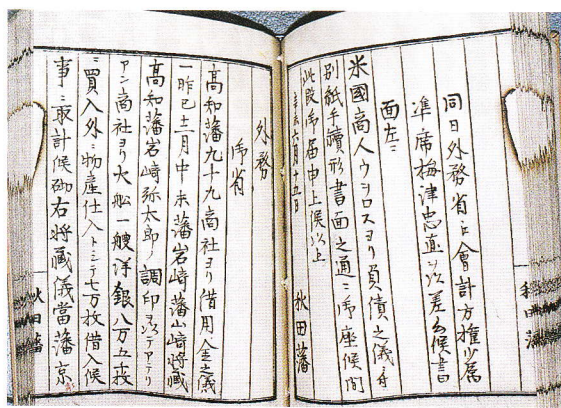 同日外務省ニ會計方権少属
準席梅津忠直ヲ以差出候書
面左ニ
米國商人ウヲロスヨリ負債之儀ハ
別紙手續形書面之通ニ御座候間
此段御届申上候以上
辛未六月十五日
秋田藩
外務
御省
高和藩九十九商社ヨリ借用金之儀
一昨巳十二月中末藩岩崎藩山崎将蔵
高和藩岩崎弥太郎ノ調印ヲ以テアテリ
アン商社ヨリ大船一艘洋銀八万五千枚
ニ買入外ニ物産仕入トシテ七万枚借入候
事ニ取計候砌右将蔵儀當藩京
秋田藩
秋田藩